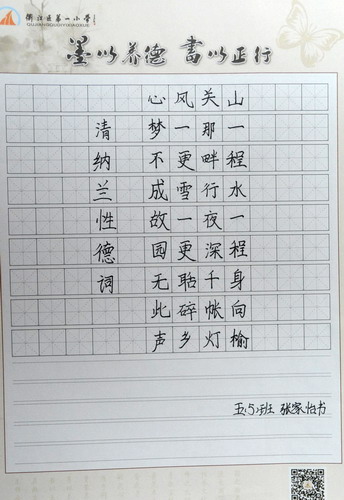 衢江区第一小学
墨以养德 書以正行
山一程水一程身向榆
关那畔行夜深千帐灯
风一更雪一更聒碎乡
心梦不成故园无此声
清纳兰性德词
五、5班 张家怡书